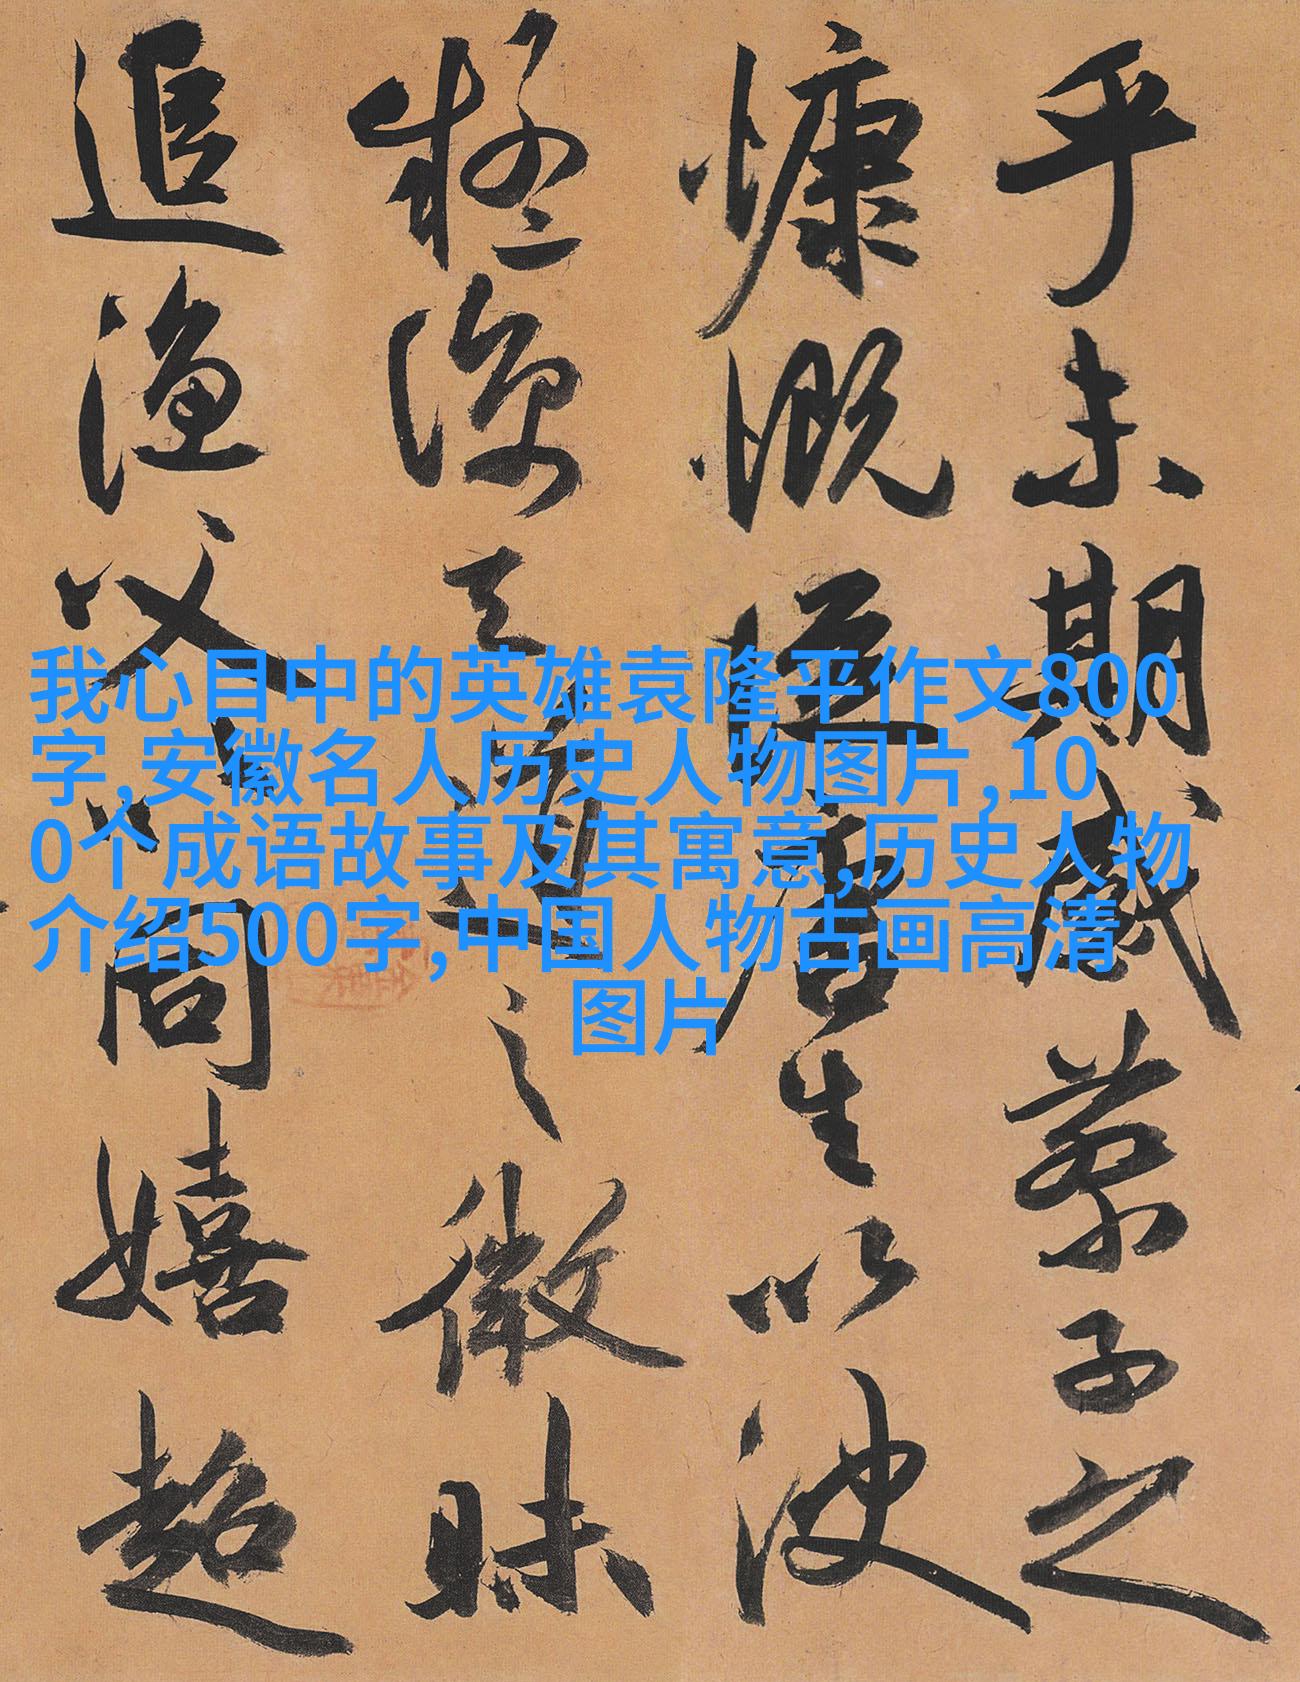 我心目中的英雄袁隆平作文800
字,安徽名人历史人物图片,10
0个成语故事及其寓意,历史人物
介绍500字,中国人物古画高清
图片
乎未期感蔡子之
慷慨從唐生以決
疑諒天道之微昧
追漁父以同嬉超